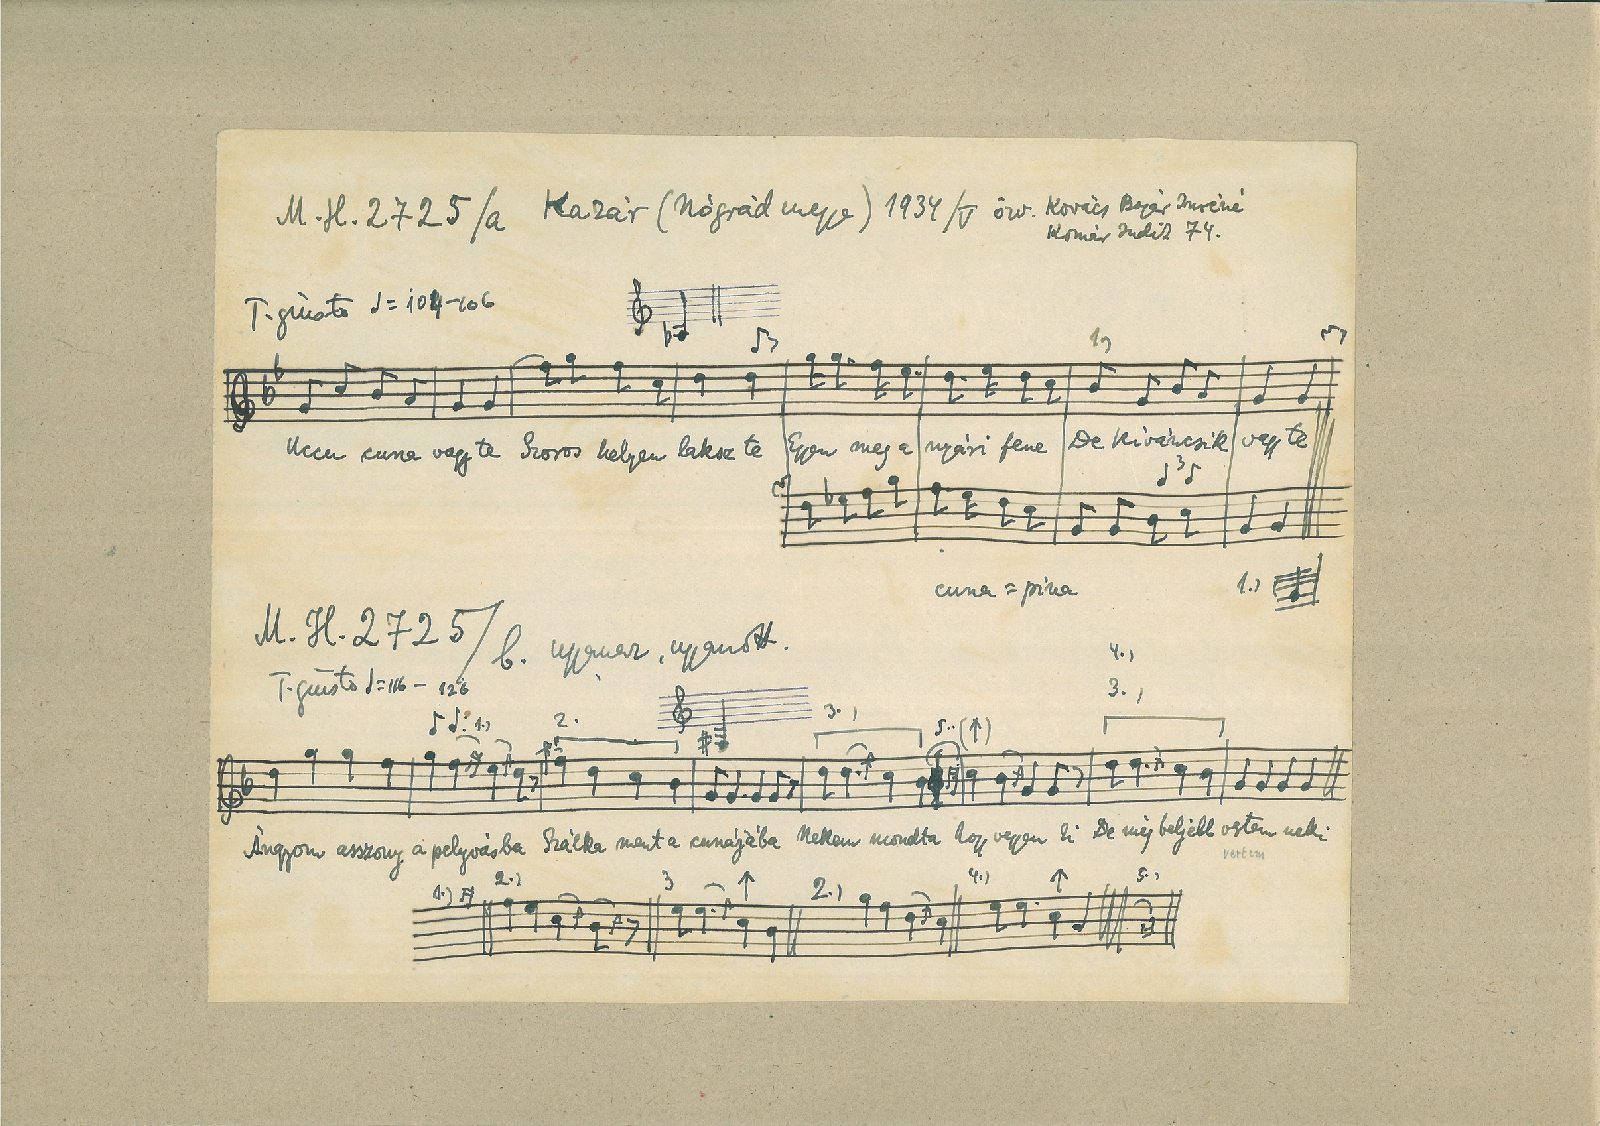 M.H. 2725/a Kazár (Nógrád megye) 1934/V özv. Kovács Bojár Imréné
Komár Judit 74.
T. giusto ♩= 104-106
1)
Uccu cuna vagy te Szoros helyen laksz te Egyen meg a nyári fene De kiváncsik vagy te
3
cuna = pina 1.)
M.H. 2725/b. ugyanaz, ugyanott.
T. giusto ♩= 116 - 126
4.)
3.)
1.) 2. 3.) 5.. (↑)
Ángyom asszony a pelyvásba Szálka ment a cunájába Nekem mondta hogy vegyem ki De még beljebb vertem neki
vertem
1.) 2.) 3 ↑ 2.) 4.) ↑ 5.)